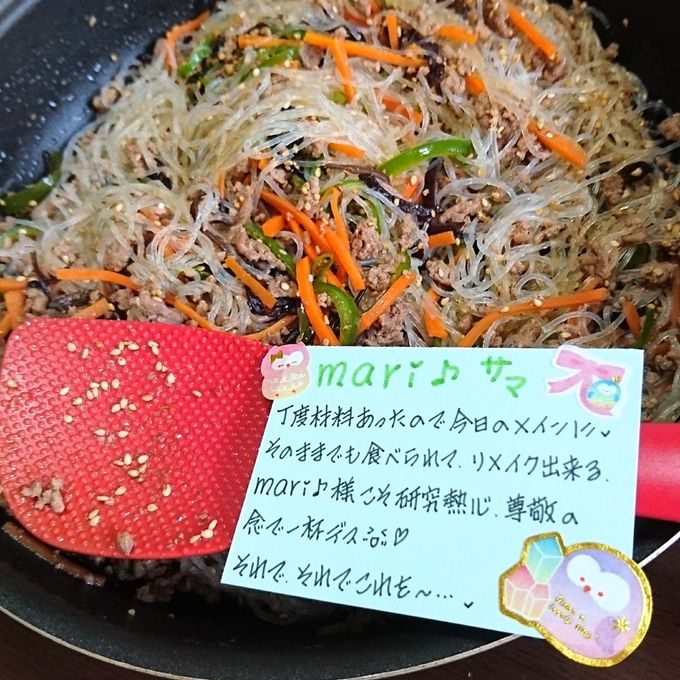 mari♪ サマ
丁度材料あったので今日のメインハン
そのままでも食べられて、リメイク出来る、
mari♪様こそ研究熱心、尊敬の
念で一杯デス♡
それで、それでこれを〜…